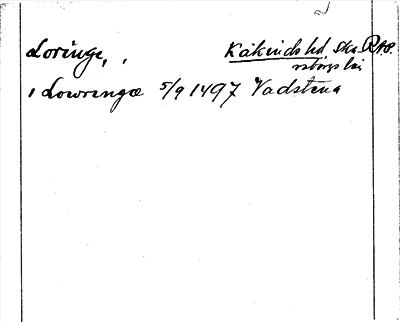 Loringe, Kåkinds hd. Ska. RAP.
raborgs län
i Lowringæ 5/9 1497 Vadstena